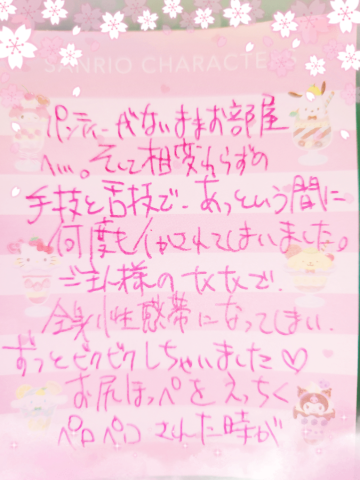 SANRIO CHARACTERS
パンティー代ないままお部屋
へ…。そして相変わらずの
手技と舌技で、あっという間に
何度もイかされてしまいました。
ご主人様の女女で、
全身性感帯になってしまい、
ずっとビクビクしちゃいました♡
お尻ほっぺをえっちく
ペロペロされた時が